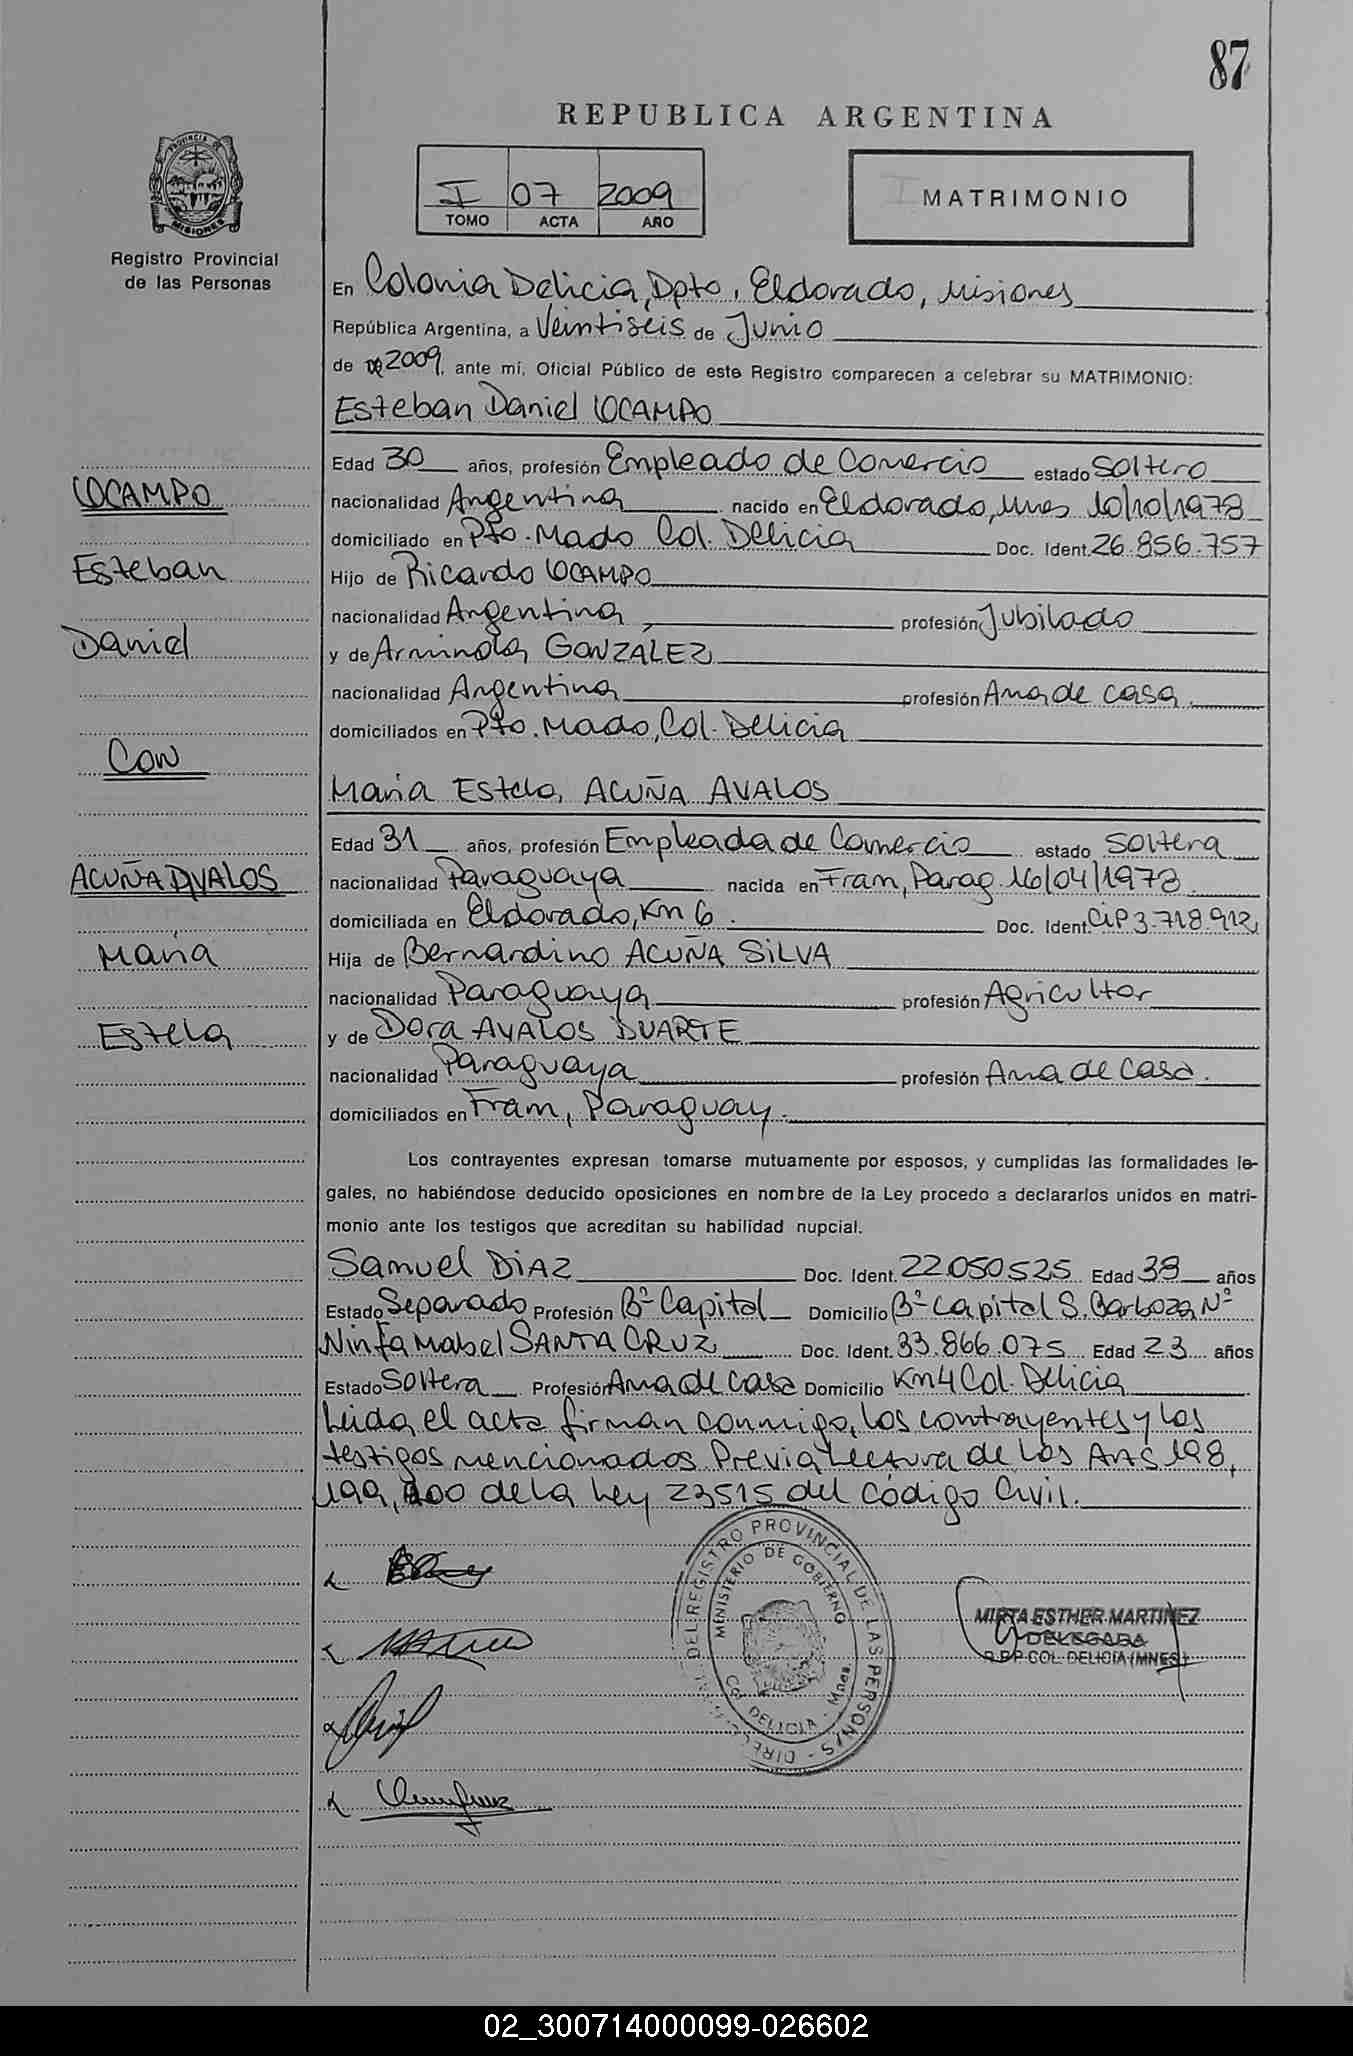 87
REPUBLICA ARGENTINA
I 07 2009
TOMO ACTA AÑO
MATRIMONIO
PROVINCIA DE
MISIONES
Registro Provincial
de las Personas
En Colonia Delicia, Dpto, Eldorado, Misiones
República Argentina, a Veintiseis de Junio
de 2009, ante mí, Oficial Público de este Registro comparecen a celebrar su MATRIMONIO:
Esteban Daniel OCAMPO
Edad 30 años, profesión Empleado de Comercio estado Soltero
OCAMPO
nacionalidad Argentina nacido en Eldorado, Mnes 10/10/1978
domiciliado en Pto. Mado Col. Delicia Doc. Ident. 26.856.757
Esteban
Hijo de Ricardo OCAMPO
nacionalidad Argentina, profesión Jubilado
Daniel
y de Arminda GONZÁLEZ
nacionalidad Argentina profesión Ama de casa.
domiciliados en Pto. Mado, Col. Delicia
Con
Maria Estela, ACUÑA AVALOS
Edad 31 años, profesión Empleada de Comercio estado Soltera
ACUÑA AVALOS
nacionalidad Paraguaya nacida en Fram, Parag. 16/04/1978.
domiciliada en Eldorado, Km 6. Doc. Ident. CiP 3.718.912
Maria
Hija de Bernardino ACUÑA SILVA
nacionalidad Paraguaya profesión Agricultor
Estela
y de Dora AVALOS DUARTE
nacionalidad Paraguaya profesión Ama de Casa.
domiciliados en Fram, Paraguay.
Los contrayentes expresan tomarse mutuamente por esposos, y cumplidas las formalidades le-
gales, no habiéndose deducido oposiciones en nombre de la Ley procedo a declararlos unidos en matri-
monio ante los testigos que acreditan su habilidad nupcial.
Samuel DiAZ Doc. Ident. 22.050.525 Edad 38 años
Estado Separado Profesión Bº Capital Domicilio Bº Capital S. Barboza Nº
Ninfa Mabel SANTA CRUZ Doc. Ident. 33.866.075 Edad 23 años
Estado Soltera Profesión Ama de casa Domicilio Km 4 Col. Delicia
Leida el acta firman conmigo, los contrayentes y los
testigos mencionados Previa Lectura de los Arts 198,
199, 200 de la Ley 23515 del Código Civil.
DEL REGISTRO PROVINCIAL DE LAS PERSONAS
MINISTERIO DE GOBIERNO
Col. DELICIA - Mnes.
MIRTA ESTHER MARTINEZ
DELEGADA
R.P.P COL. DELICIA (MNES)
02_300714000099-026602